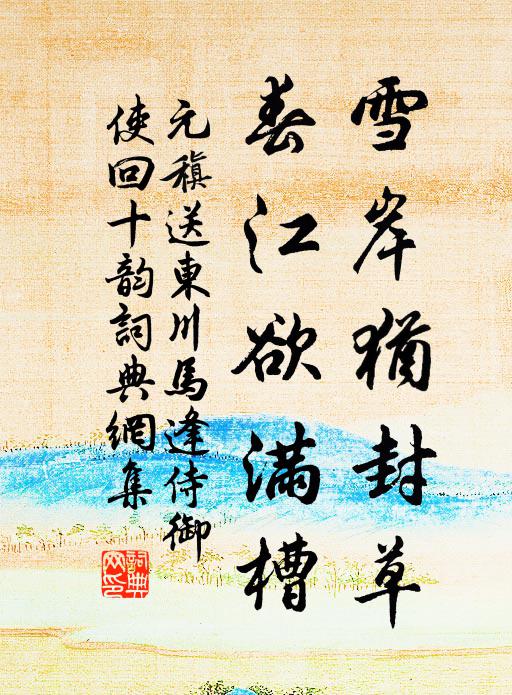 雪岸猶封草
春江欲满槽
元稹送東川馬逢侍御
使回十韵詞典網集
詞典
网印